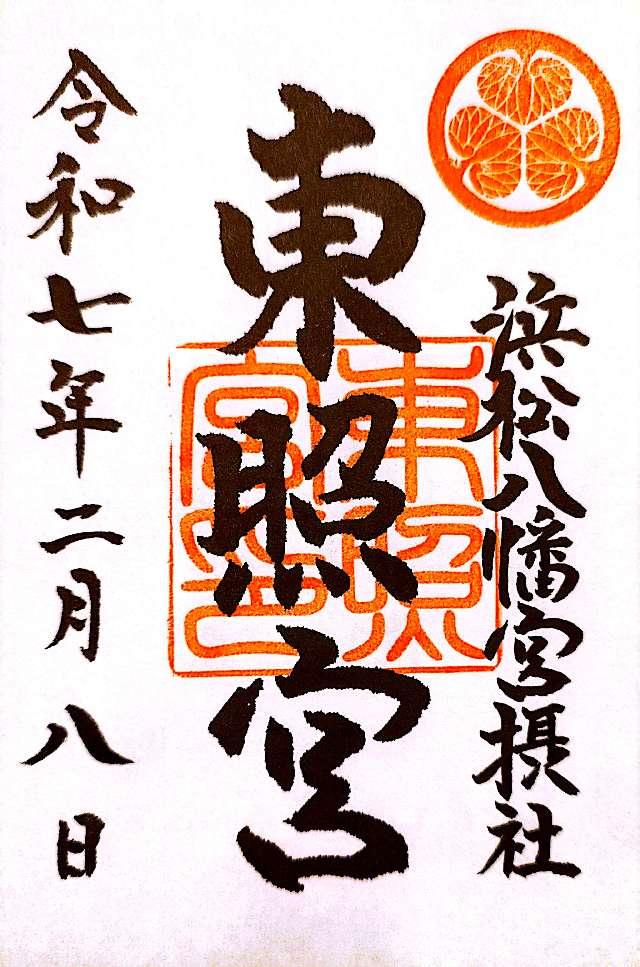 浜松八幡宮摂社
東照宮
東照宮印
令和七年二月八日